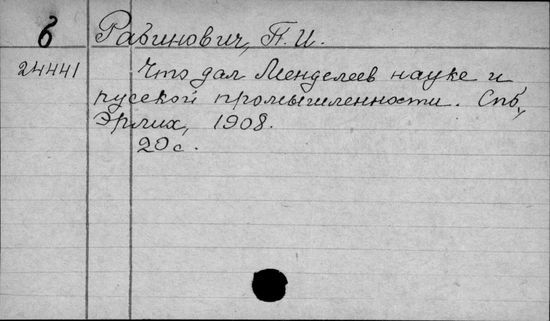 б Рабинович, П. И.
24441 Что дал Менделеев науке и
русской промышленности. Спб,
Эрлих, 1908.
20 с.